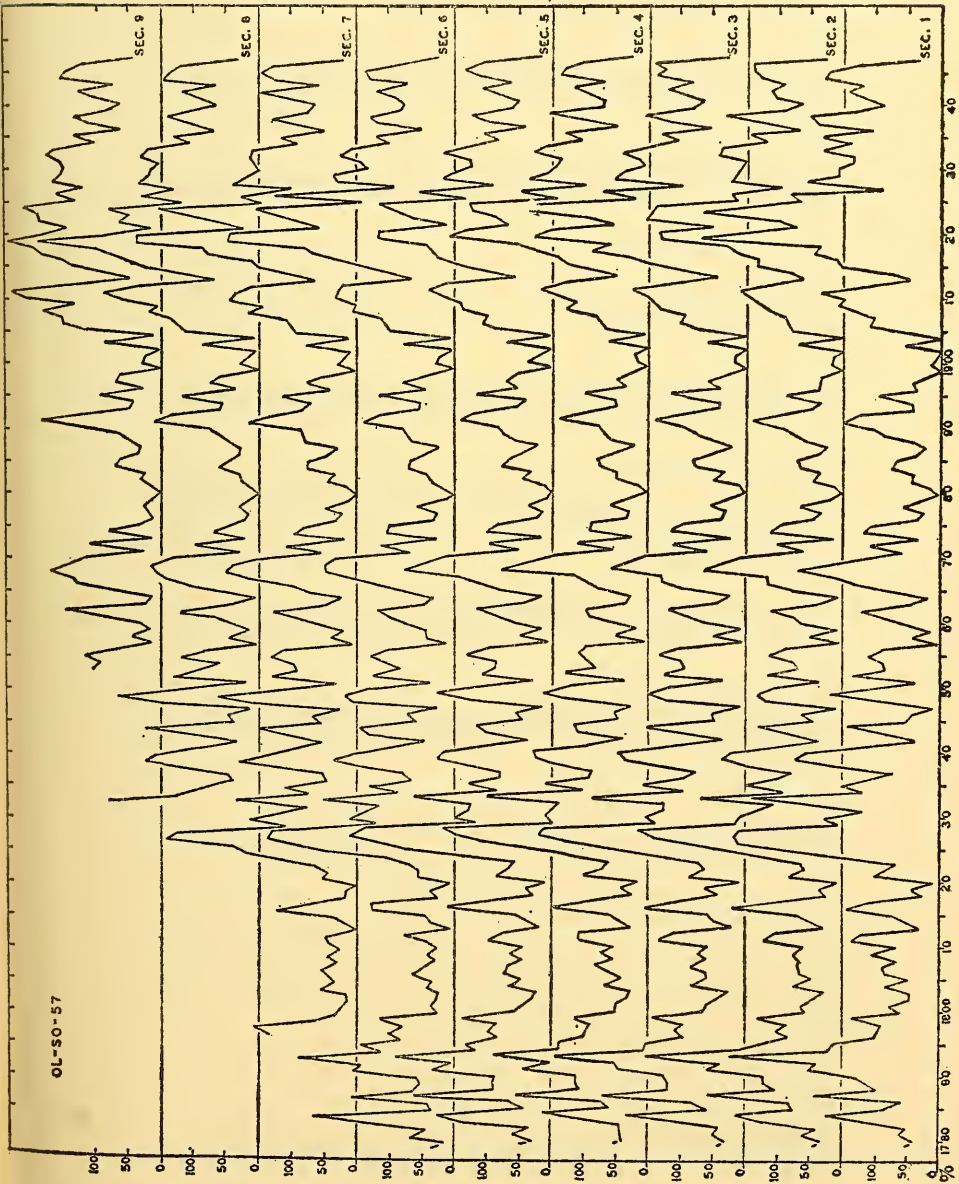 OL-SO-57
SEC. 9
SEC. 8
SEC. 7
SEC. 6
SEC. 5
SEC. 4
SEC. 3
SEC. 2
SEC. 1
100
50
0
100
50
0
100
50
0
100
50
0
100
50
0
100
50
0
100
50
0
100
50
0
100
50
0
% 17'80 9'0 18'00 1'0 2'0 3'0 4'0 5'0 6'0 7'0 8'0 9'0 19'00 1'0 2'0 3'0 4'0